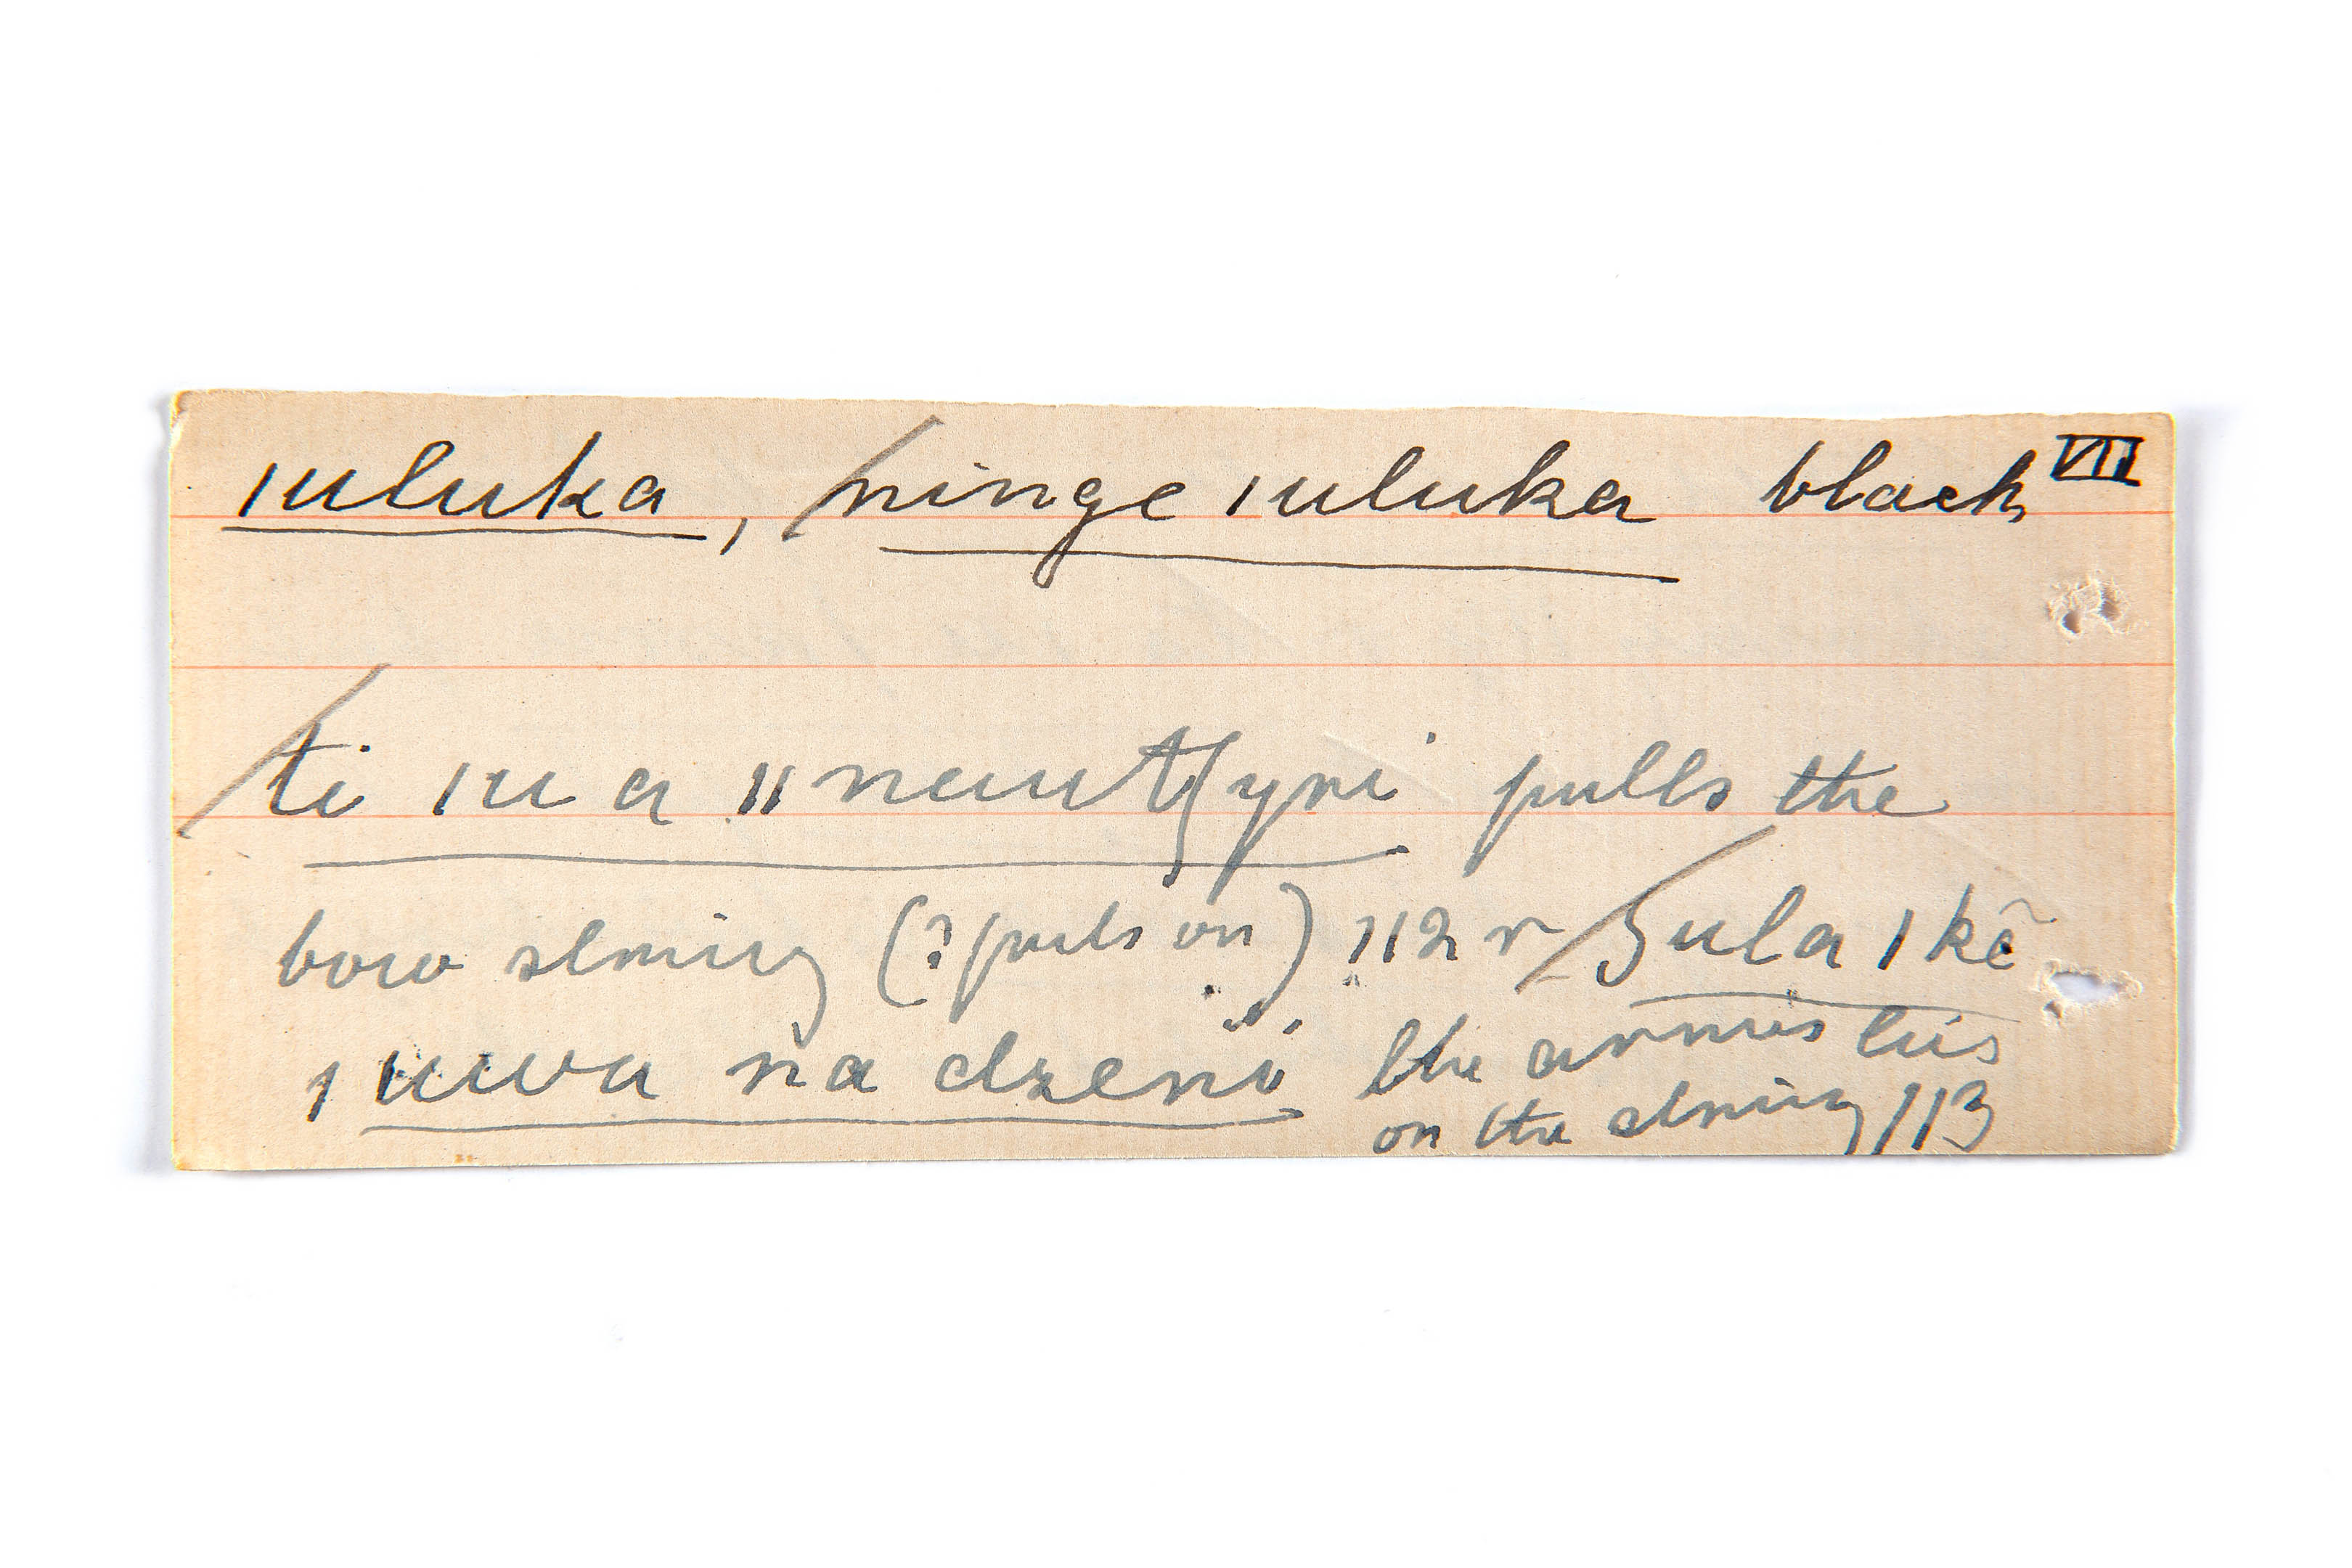 ıuluka, ninge ıuluka black VII
ti ıu a ıı nautʃyni pulls the
bow string (? puts on) 112 r ʒula ı kẽ
ı uwa na dzeni the arrow is
on the string 113